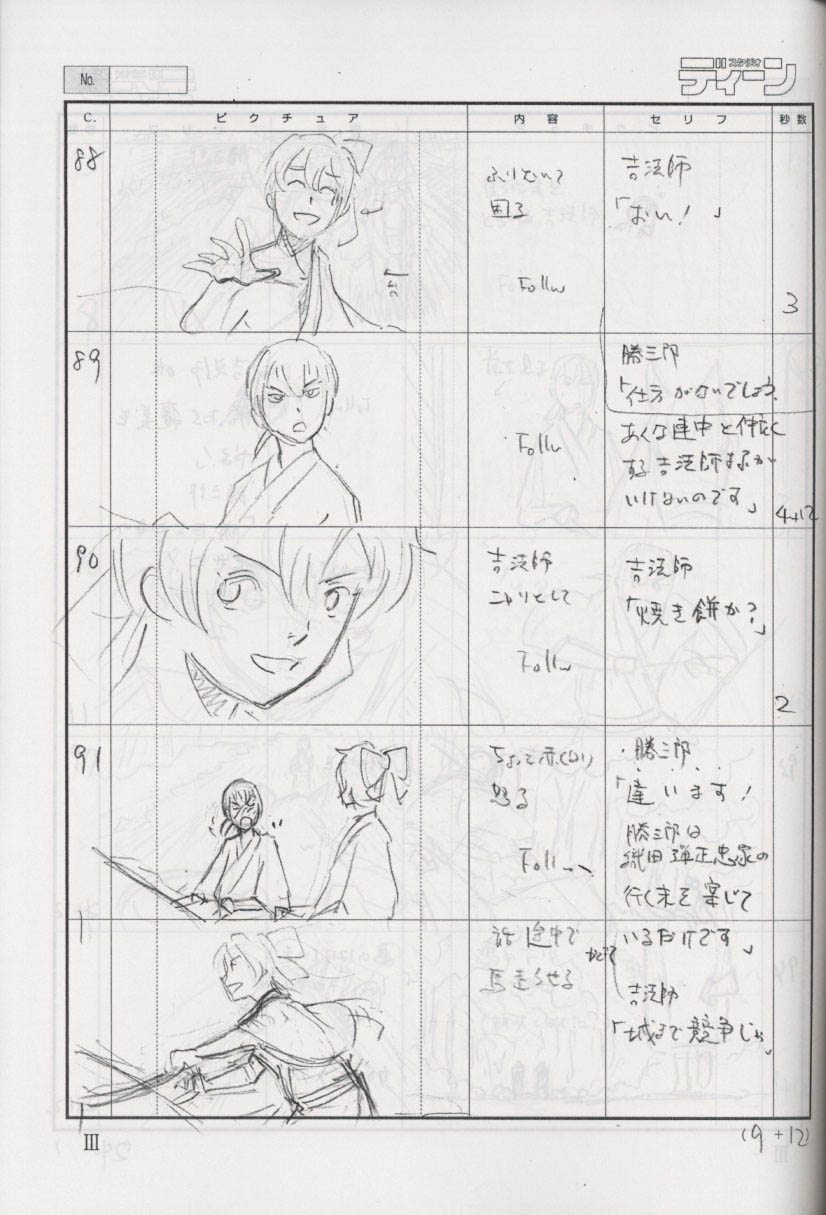 No.
スタジオ
ディーン
C.
ピクチュア
内容
セリフ
秒数
88
ふりむいて
困る
Follow
吉法師
「おい!」
3
89
Follow
勝三郎
「仕方がないでしょう、
あんな連中と仲良く
する吉法師さまが
いけないのです」
4+12
90
吉法師
ニヤリとして
Follow
吉法師
「焼き餅か?」
2
91
ちょっと赤くなり
怒る
Follow
勝三郎
「違います!
勝三郎は
織田弾正忠家の
行く末を案じて
話途中で
馬走らせる
いるだけです」
吉法師
「城まで競争じゃ」
III
(9+12)